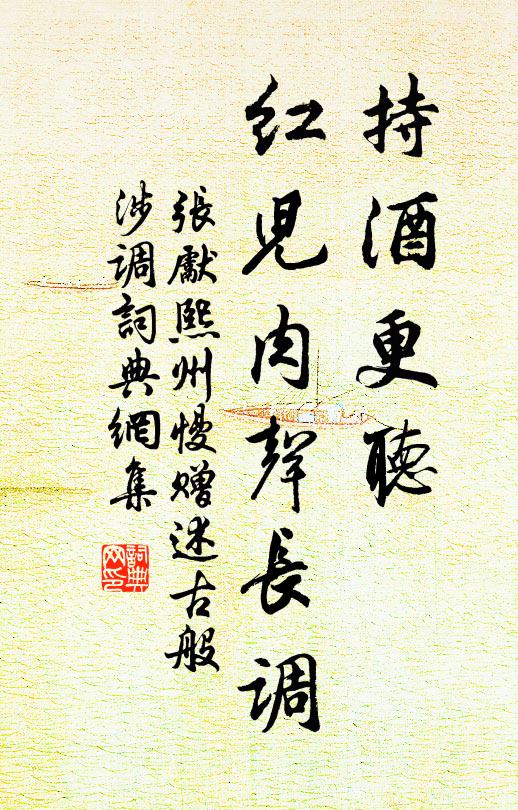 持酒更聽
紅兒肉聲長調
張獻熙州慢贈述古般
涉调詞典網集
詞典网印